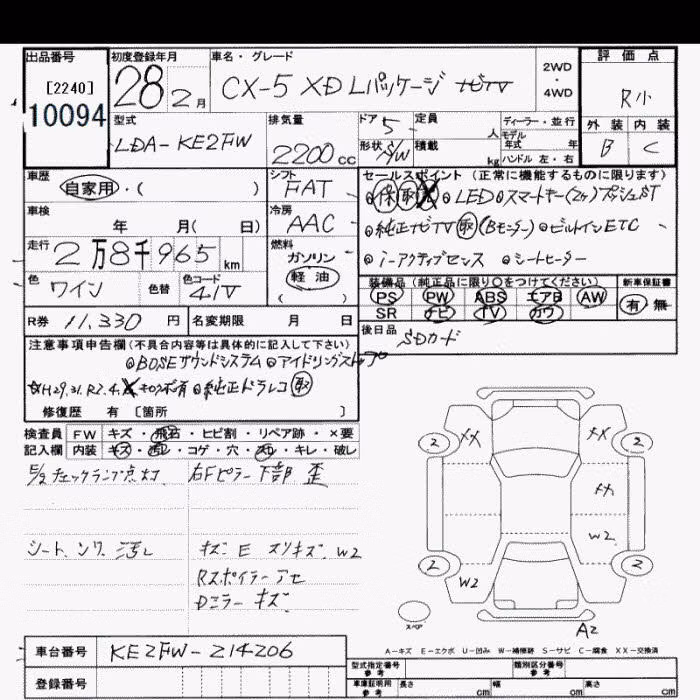 出品番号
[2240]
10094
初度登録年月
28 2月
車名・グレード
CX-5 XD Lパッケージ ナビTV
2WD
・
4WD
評価点
R小
外装 内装
B C
型式
LDA-KE2FW
排気量
2200cc
ドア 5
形状 S/W
定員 人
積載 kg
ディーラー・並行
モデル年式 年
ハンドル 左・右
車歴
自家用・( )
シフト
FAT
車検
年 月( 日)
冷房
AAC
走行
2万8千965km
燃料
ガソリン
軽油
( )
色 ワイン
色替
色コード 41V
R券 11,330円
名変期限 月 日
セールスポイント(正常に機能するものに限ります)
◎LED◎スマートキー(2ケ)プッシュST
◎純正ナビTV 取(Bモニター)◎ビルトインETC
◎i-アクティブセンス ◎シートヒーター
装備品(純正品に限り〇をつけてください)
PS PW ABS エアB AW
SR ナビ TV カワ
新車保証書
有・無
後日品 SDカード
注意事項申告欄(不具合内容等は具体的に記入して下さい)
◎BOSEサウンドシステム◎アイドリングストップ
☆H29.31.R2.4. キロク有◎純正ドラレコ 取
修復歴 有 [箇所 ]
検査員 FW キズ・飛石・ヒビ割・リペア跡・×要
記入欄 内装 キズ・汚レ・コゲ・穴・スレ・キレ・破レ
E/gチェックランプ点灯
右Fピラー下部 歪
シート、ンワ、汚レ
キズ E スリキズ、W2
Rスポイラーアセ
Dミラーキズ
2 XX XX 2
XX
W2
2 W2 2
スペア
A2
A-キズ E-エクボ U-凹み W-補修跡 S-サビ C-腐食 XX-交換済
車台番号 KE2FW-214206
登録番号
型式指定番号
参考
類別区分番号
参考
車庫証明用
参考
長さ cm 幅 cm 高さ cm